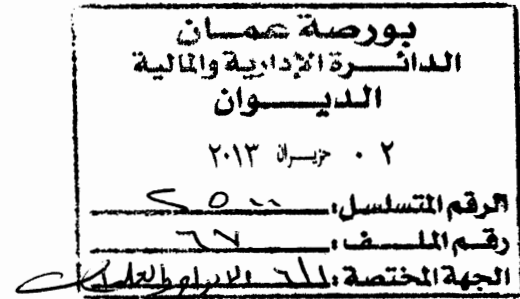 بورصة عمـان
الدائـــرة الإدارية والمالية
الديـــوان
٠٢ حزيـران ٢٠١٣
الرقم المتسلسل: ٢٥٠٠
رقـم الملـــف: ٦٧
الجهة المختصة: